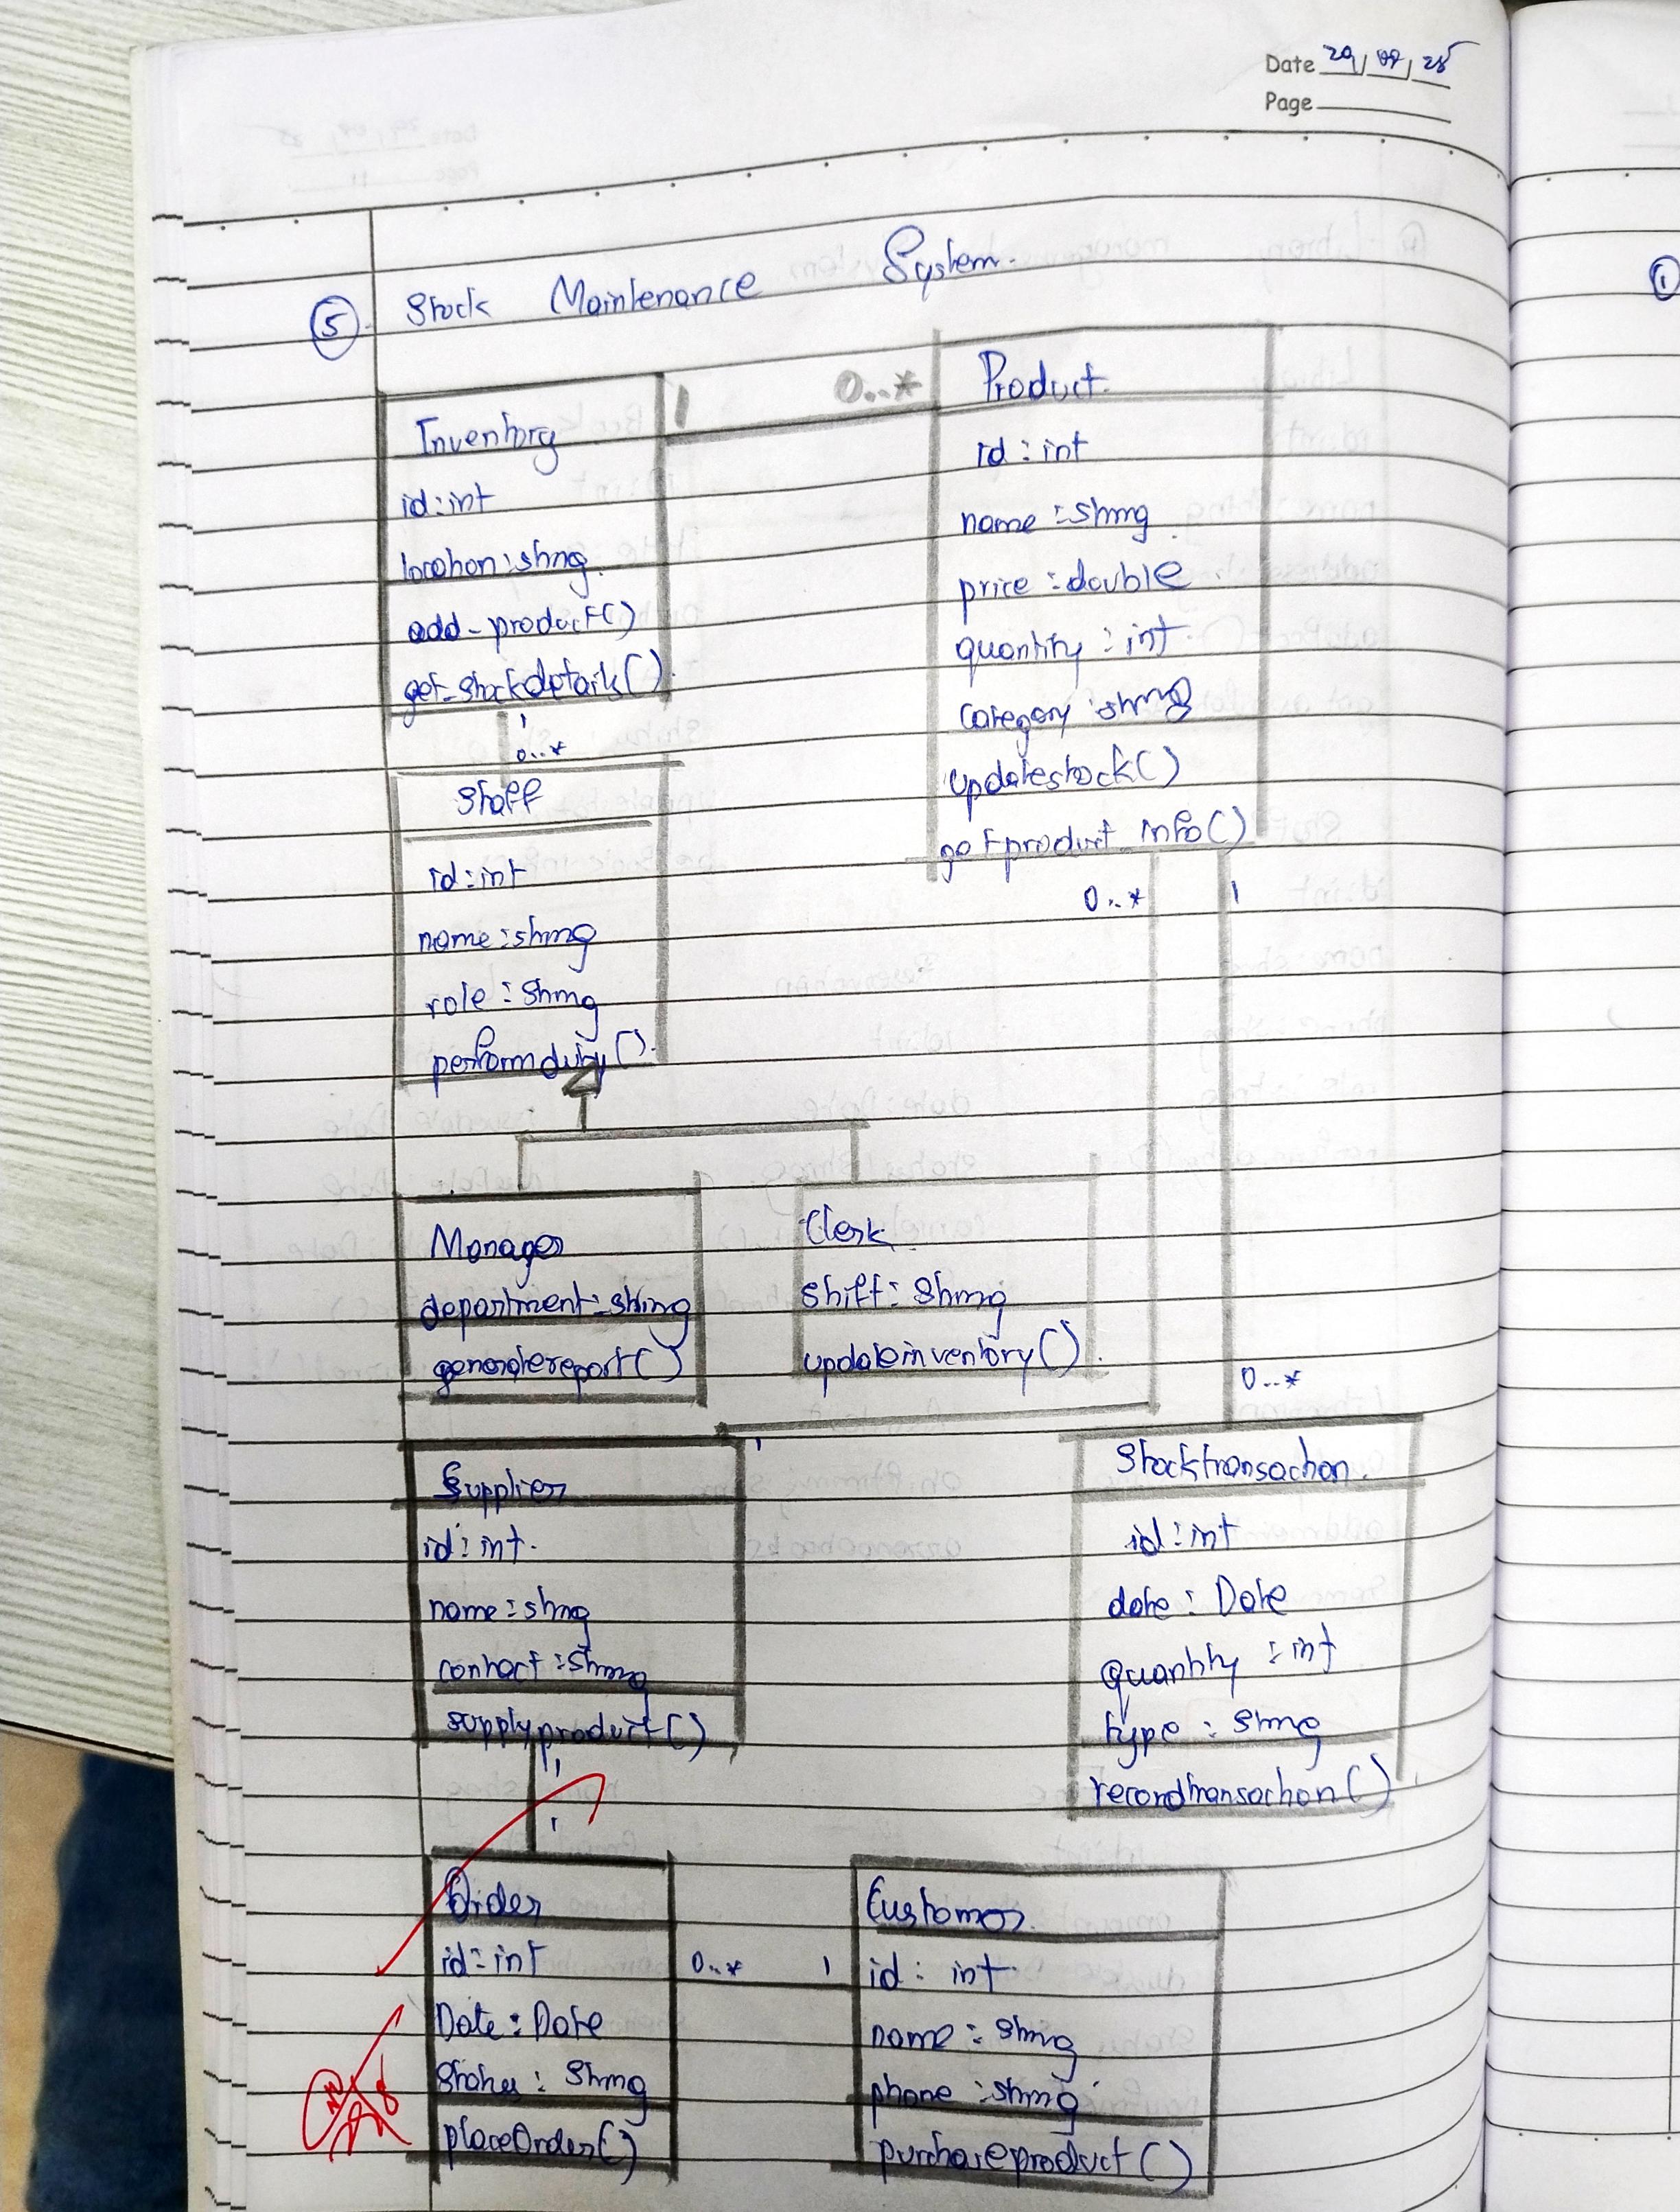 Date 29/09/25
Page
5. Stock Maintenance System.
Inventory
id:int
location:string.
add-product()
get-stockdetails().
1
0..*
Product.
id:int
name:string.
price:double
quantity:int.
category:string
updatestock()
getproduct info()
1
0..*
Staff
id:int
name:string
role:string
performduty().
0..*
1
Manager
department:string
generatereport()
Clerk
shift:string
updateinventory().
0..*
1
Supplier
id:int.
name:string
contact:string
supplyproduct()
Stocktransaction.
id:int
date:Date
quantity:int
type:string
recordtransaction()
1
1
Order
id:int
Date:Date
Status:String
placeOrder()
0..*
1
Customer.
id:int.
name:string
phone:string
purchaseproduct()
1